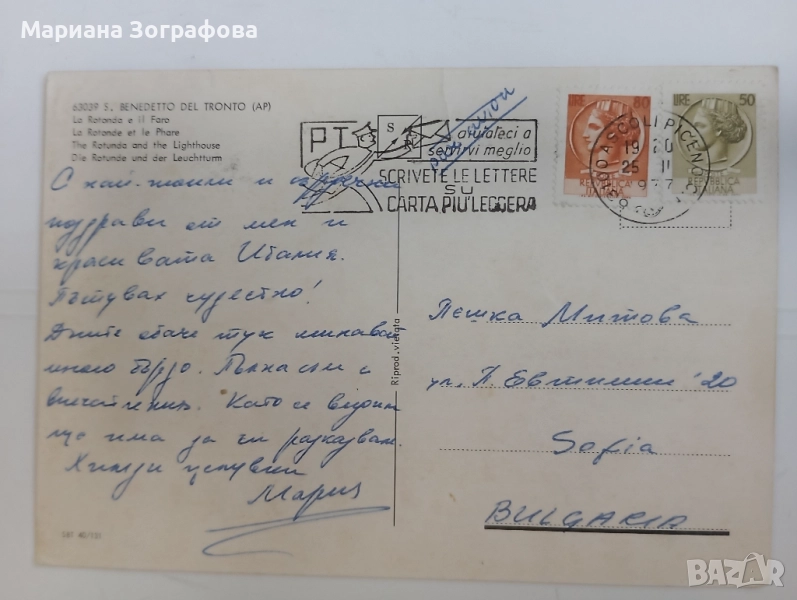 Мариана Зографова
63039 S. BENEDETTO DEL TRONTO (AP)
La Rotonda e il Faro
La Rotonde et le Phare
The Rotunda and the Lighthouse
Die Rotunde und der Leuchtturm
PT
aiutateci a
servirvi meglio
SCRIVETE LE LETTERE
SU
CARTA PIÙ LEGGERA
par avion
LIRE 80
REPUBBLICA
ITALIANA
LIRE 50
REPUBBLICA
ITALIANA
ASCOLI PICENO
19-20
25 II
1977
С най-топли и сърдечни
поздрави от мен и
красивата Италия.
Пътувах чудестно!
Дните обаче тук минават
много бързо. Пълна съм с
впечатления. Като се видим
ще има за ги разказвам.
Хиляди целувки
Мария
Пешка Митова
ул. П. Евтимии 20
Sofia
BULGARIA
Riprod. vietata
SRT 40/131
BAZAR